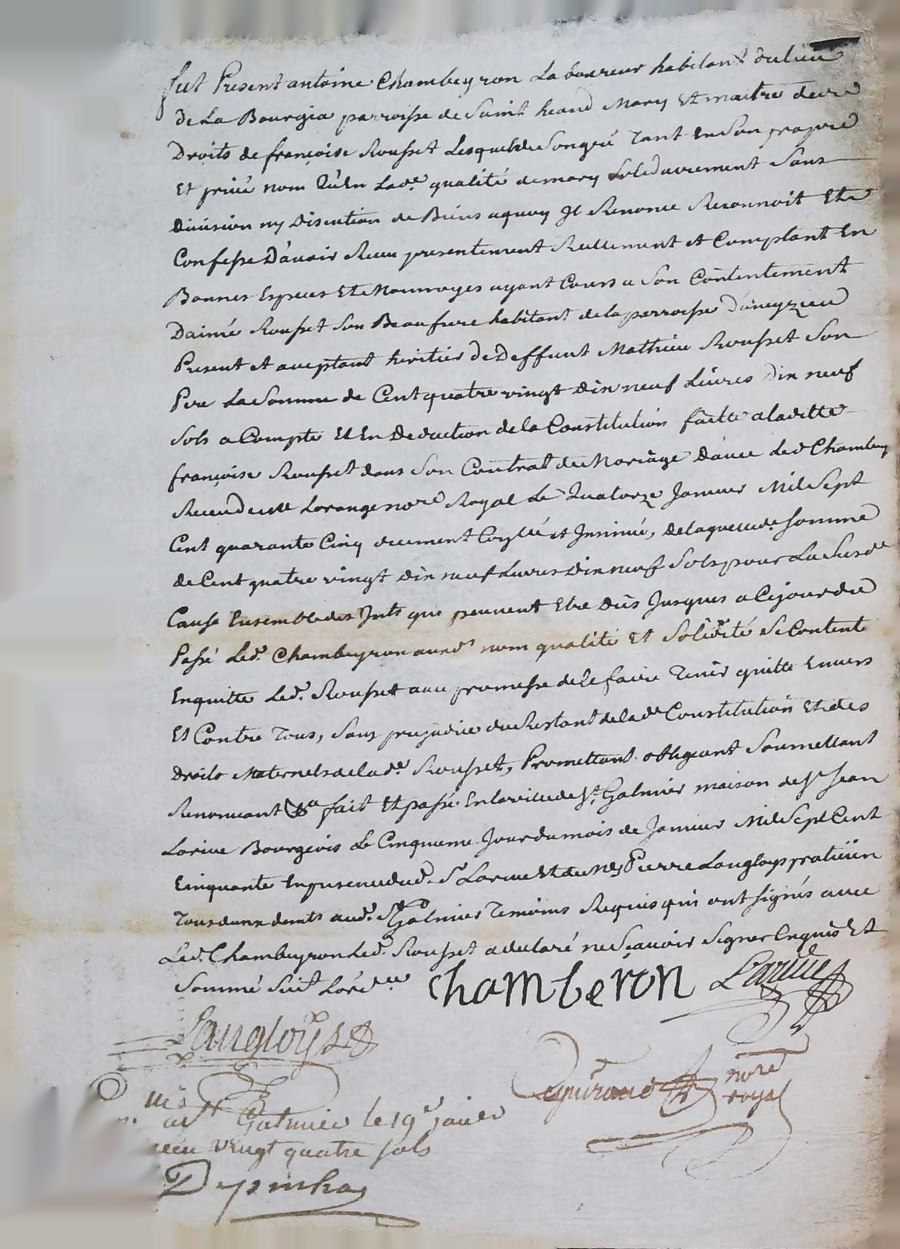 fut Present antoine Chambeyron Laboureur habitant du lieu
de La Bourgia parroisse de Saint heand Mary Et maitre des
Droits de françoise Rousset Lesquel de Son gré Tant En Son propre
Et privé nom Qu'En Lad.e qualité de mary Solidairement Sans
Division ny Discution de Biens aquoy Il Renonce Reconnoit Et
Confesse D'avoir Receu presentement Reellement et Comptant En
Bonnes Especes Et Monnoyes ayant Cours a Son Contentement
D'aimé Rousset Son Beaufrere habitant de la parroisse d'aveyzieu
Present et aceptant heritier de Deffunt Mathieu Rousset Son
Pere La Somme de Cent quatre vingt Dix neuf Livres Dix neuf
Sols a Compte Et En Deduction de la Constitution faitte a laditte
françoise Rousset dans Son Contrat de Mariage Davec led Chambey
Receu de Me Lorange nore Royal Le Quatorze Janvier Mil Sept
Cent quarante Cinq deument Cont.lé et Insinué, De laquelle de Somme
de Cent quatre vingt Dix neuf Livres Dix neuf Sols pour La Susd.e
Cause Ensemble des Ints qui peuvent Etre Dûs Jusques a Cejourdui
Passé Led. Chambeyron auxd.s nom qualité Et Solidité Se Contente
Enquitte Led. Rousset avec promesse de le faire Tenir quitte Envers
Et Contre Tous, Sans prejudice du Restant de lad.e Constitution Et des
Droits Maternels de lad.e Rousset, Promettant obligeant Soumettant
Renonceant &a fait Et passé En la ville de St. Galmier maison de Sr Jean
Larive Bourgeois Le Cinquieme Jour du mois de Janvier Mil Sept Cent
Cinquante En presence dud. Sr Larive Et de Me Pierre Langloys praticien
Tous deux demts aud. St Galmier Temoins Requis qui ont Signés avec
Led. Chambeyron Led. Rousset a declaré ne Scavoir Signer Enquis Et
Sommé Suit L'ord.ce
Chamberon Larive
Langloys
nore
royal
Galmier le 19e janvier
receu vingt quatre sols